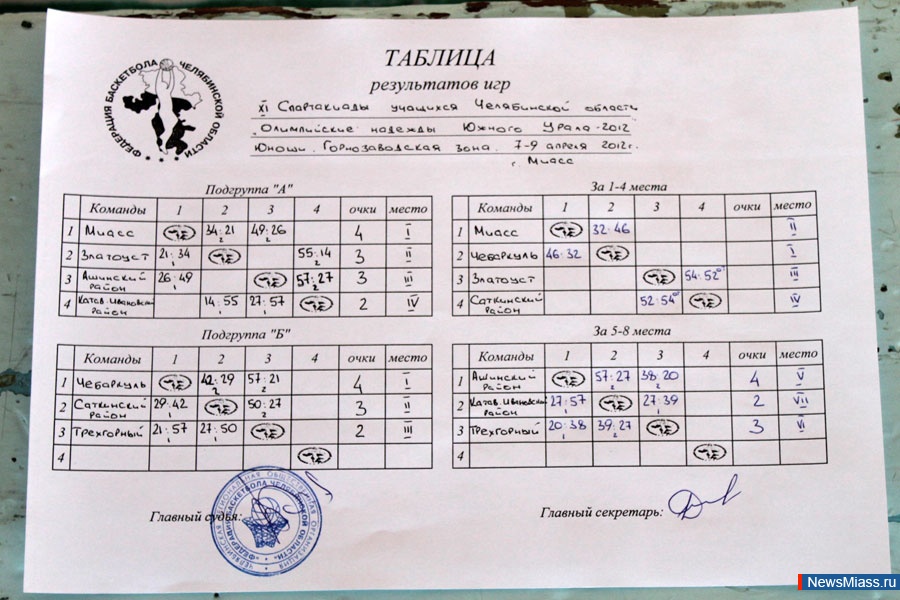 ТАБЛИЦА
результатов игр
XI Спартакиады учащихся Челябинской области
"Олимпийские надежды Южного Урала-2012"
Юноши. Горнозаводская зона. 7-9 апреля 2012г.
г. Миасс
ФЕДЕРАЦИЯ БАСКЕТБОЛА ЧЕЛЯБИНСКОЙ ОБЛАСТИ
Подгруппа "А"
Команды 1 2 3 4 очки место
1 Миасс 34:21 2 49:26 2 4 I
2 Златоуст 21:34 1 55:14 2 3 II
3 Ашинский район 26:49 1 57:27 2 3 III
4 Катав.Ивановский район 14:55 1 27:57 1 2 IV
За 1-4 места
Команды 1 2 3 4 очки место
1 Миасс 32:46 II
2 Чебаркуль 46:32 I
3 Златоуст 54:52 III
4 Саткинский район 52:54 IV
Подгруппа "Б"
Команды 1 2 3 4 очки место
1 Чебаркуль 42:29 2 57:21 2 4 I
2 Саткинский район 29:42 1 50:27 2 3 II
3 Трехгорный 21:57 1 27:50 1 2 III
4
За 5-8 места
Команды 1 2 3 4 очки место
1 Ашинский район 57:27 2 38:20 2 4 V
2 Катав.Ивановский район 27:57 1 27:39 1 2 VII
3 Трехгорный 20:38 1 39:27 2 3 VI
4
Главный судья:
Главный секретарь:
ЧЕЛЯБИНСКАЯ РЕГИОНАЛЬНАЯ ОБЩЕСТВЕННАЯ ОРГАНИЗАЦИЯ
"ФЕДЕРАЦИЯ БАСКЕТБОЛА ЧЕЛЯБИНСКОЙ ОБЛАСТИ"
NewsMiass.ru